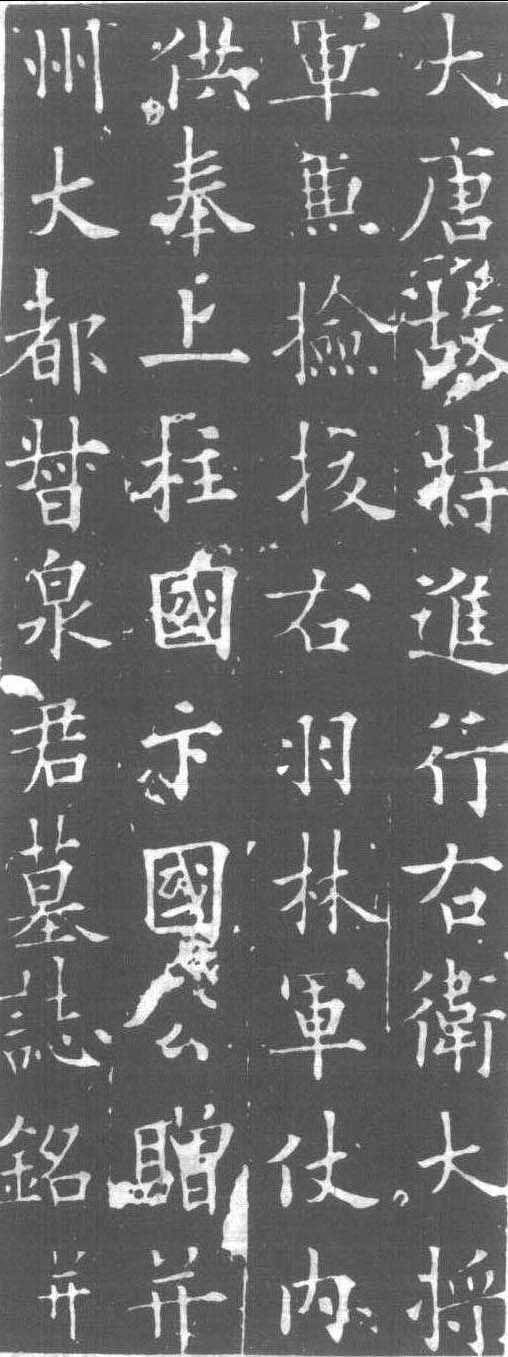 大唐故特進行右衛大將
軍兼撿挍右羽林軍仗內
供奉上柱國卞國公贈并
州大都督泉君墓誌銘并